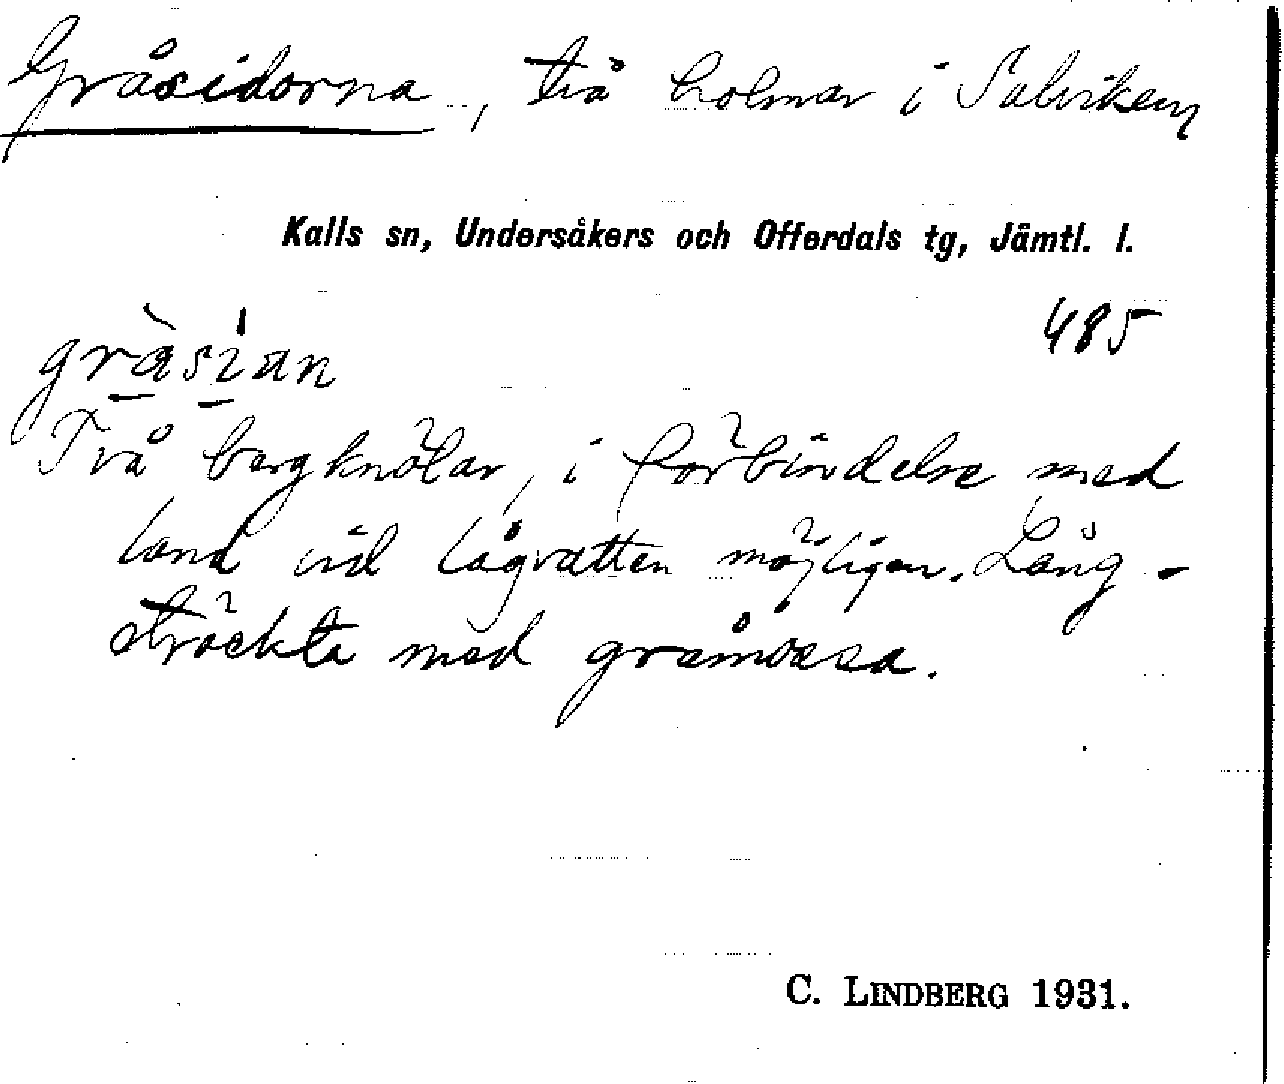 Gråsidorna, två holmar i Salviken
Kalls sn, Undersåkers och Offerdals tg, Jämtl. l.
485
gràsi̇an
Två bergknölar, i förbindelse med
land vid lågvatten möjligen. Lång-
sträckta med gråmossa.
C. LINDBERG 1931.